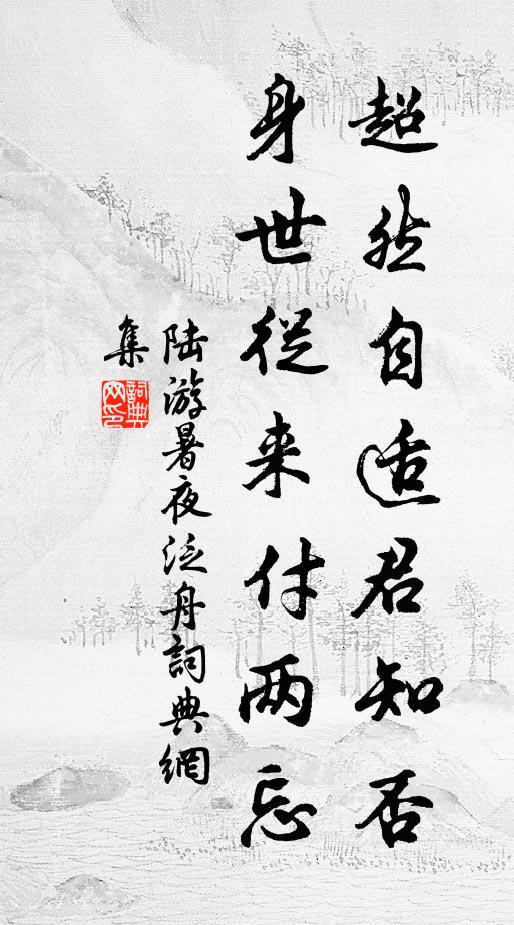 超然自适君知否
身世從来付两忘
陆游暑夜泛舟詞典網
集
詞典
网印